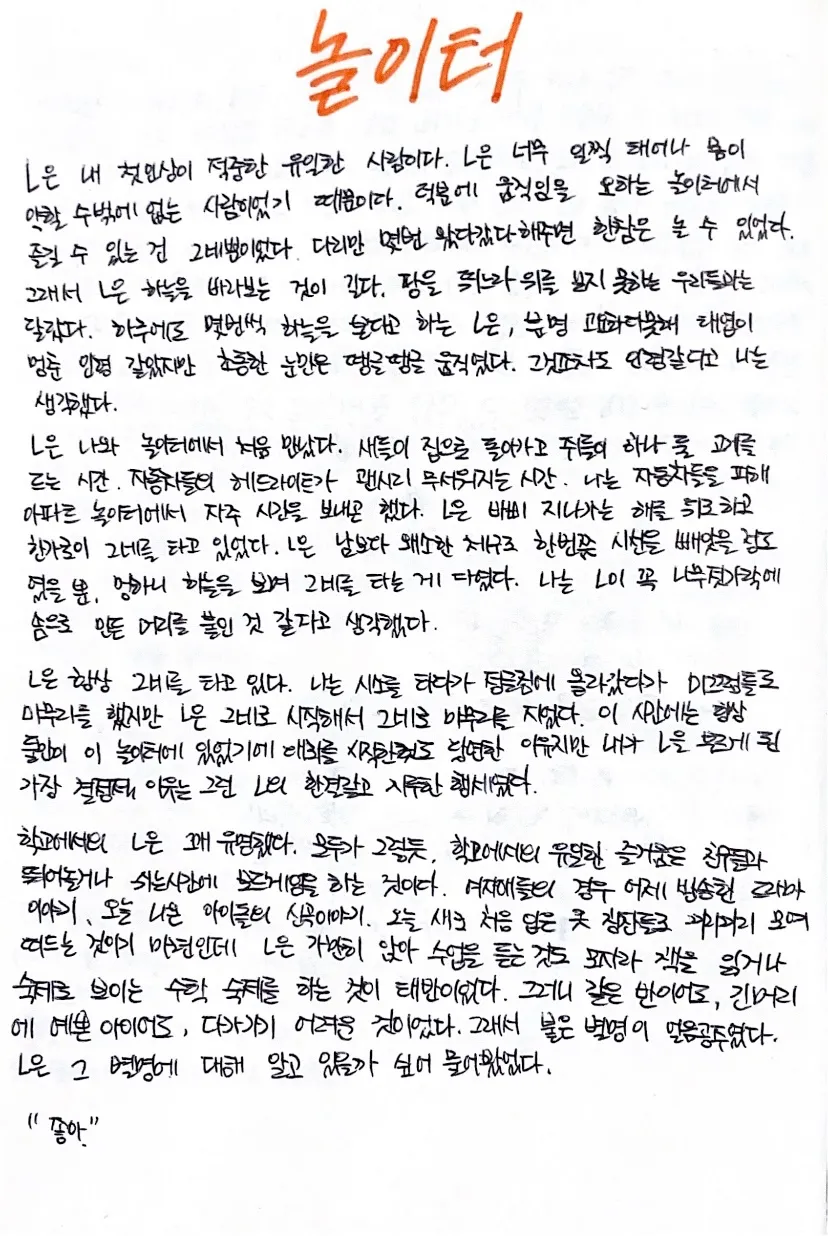 놀이터
L은 내 첫인상이 적중한 유일한 사람이다. L은 너무 일찍 태어나 몸이
약할 수밖에 없는 사람이었기 때문이다. 덕분에 움직임을 요하는 놀이터에서
즐길 수 있는 건 그네뿐이었다. 다리만 몇번 왔다갔다 해주면 한참은 놀 수 있었다.
그래서 L은 하늘을 바라보는 것이 길다. 땅을 뛰느라 위를 보지 못하는 우리들과는
달랐다. 하루에도 몇번씩 하늘을 본다고 하는 L은, 분명 태엽이
멈춘 인형 같았지만 초롱한 눈만은 땡글땡글 움직였다. 그것조차도 인형같다고 나는
생각했다.
L은 나와 놀이터에서 처음 만났다. 새들이 집으로 돌아가고 주름이 하나 둘 고개를
드는 시간. 자동차들의 헤드라이트가 괜시리 무서워지는 시간. 나는 자동차들을 피해
아파트 놀이터에서 자주 시간을 보내곤 했다. L은 바삐 지나가는 해를 뒤로하고
한가로이 그네를 타고 있었다. L은 남보다 왜소한 체구로 한번쯤 시선을 빼앗을 정도
였을 뿐, 멍하니 하늘을 보며 그네를 타는 게 다였다. 나는 L이 꼭 나무젓가락에
솜으로 만든 머리를 붙인 것 같다고 생각했다.
L은 항상 그네를 타고 있다. 나는 시소를 타다가 정글짐에 올라갔다가 미끄럼틀로
마무리를 했지만 L은 그네로 시작해서 그네로 마무리를 지었다. 이 시간에는 항상
둘만이 이 놀이터에 있었기에 대화를 시작한것도 당연한 이유지만 내가 L을 부르게 된
가장 결정적 이유는 그런 L의 한결같고 지루한 행세였다.
학교에서의 L은 꽤 유명했다. 모두가 그렇듯, 학교에서의 유일한 즐거움은 친구들과
뛰어놀거나 쉬는시간에 보드게임을 하는 것이다. 여자애들의 경우 어제 방송된 드라마
이야기, 오늘 나온 아이돌의 신곡이야기, 오늘 새로 처음 입은 옷 끼리끼리 모여
떠드는 것이기 마련인데 L은 가만히 앉아 수업을 듣는것도 모자라 책을 읽거나
숙제로 보이는 수학 숙제를 하는 것이 태반이었다. 그러니 같은 반이어도, 긴머리
에 예쁜 아이어도, 다가가기 어려운 것이었다. 그래서 붙은 별명이 얼음공주였다.
L은 그 별명에 대해 알고 있을까 싶어 물어봤었다.
"좋아."